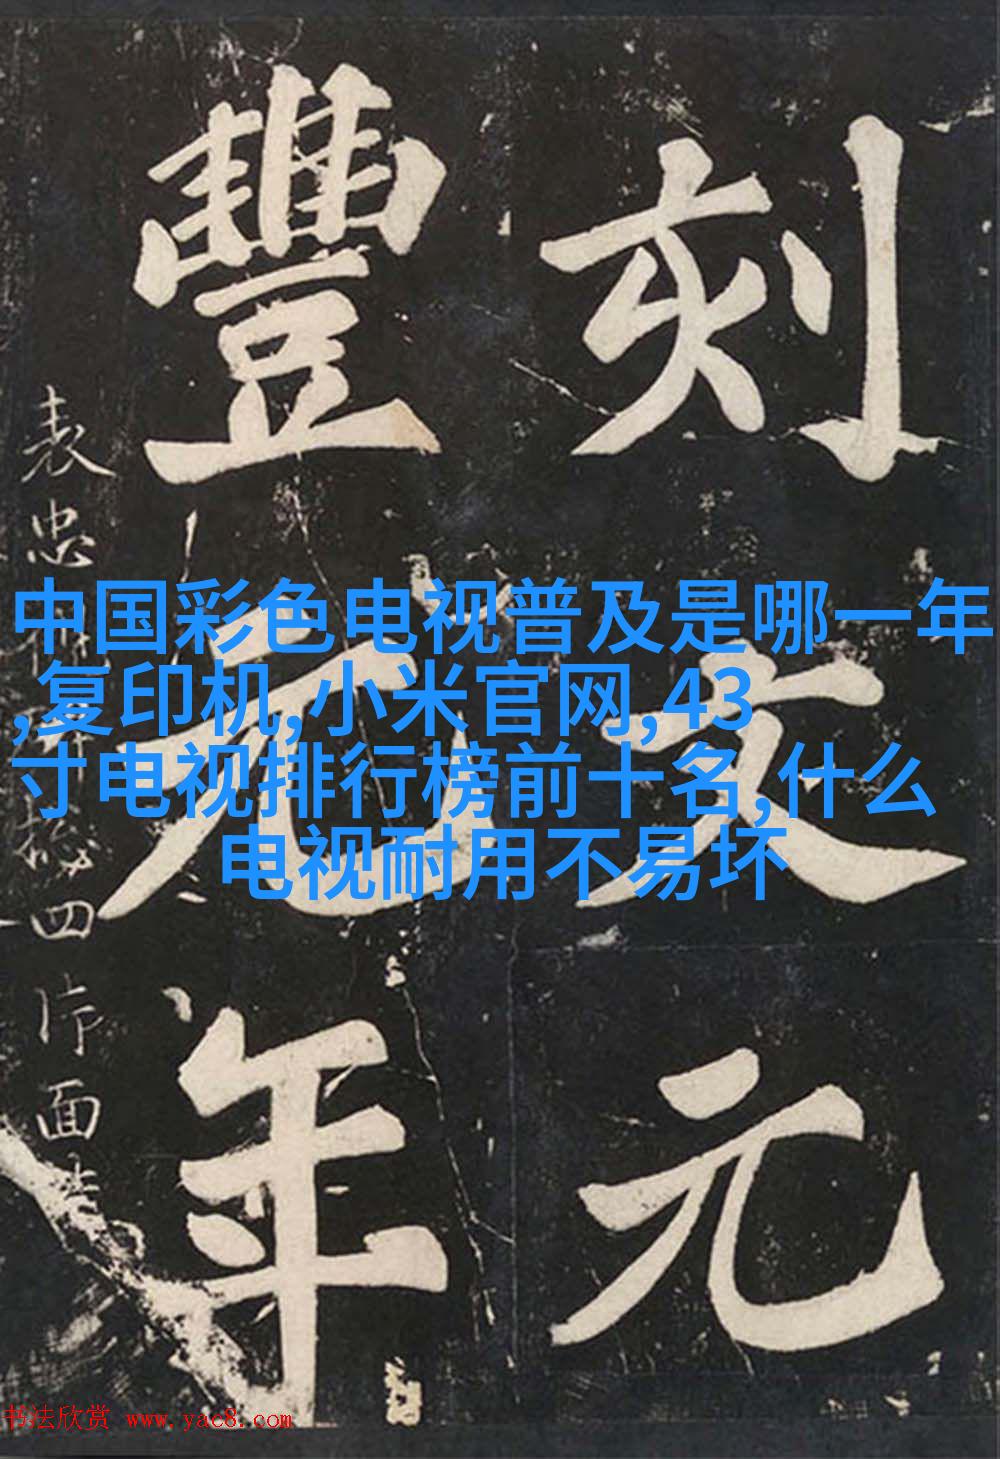 刻文元
豐元年
表忠 四片面
中国彩色电视普及是哪一年
,复印机,小米官网,43
寸电视排行榜前十名,什么
电视耐用不易坏
书法欣赏 www.yac8.com